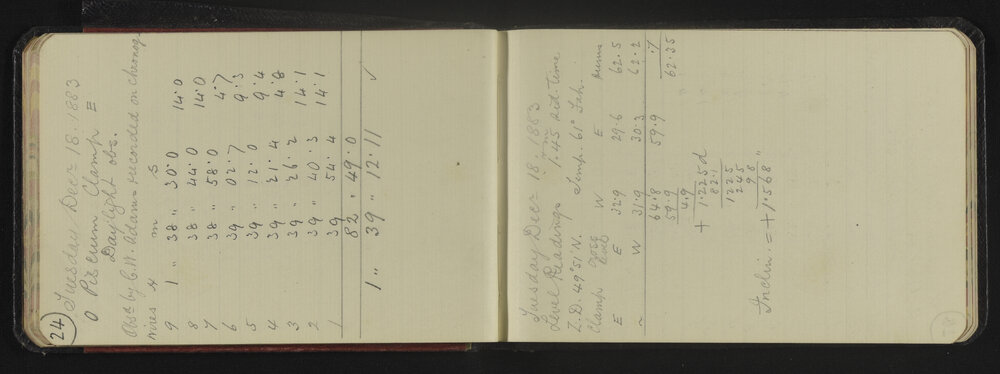 24 Tuesday Decr 18. 1883
O Piscium Clamp E
Daylight obs.
Obsd by C.W. Adams & recorded on chronog.
Wires H m s
9 1 " 38 " 30.0 14.0
8 38 " 44.0 14.0
7 38 " 58.0 4.7
6 39 " 02.7 9.3
5 39 " 12.0 9.4
4 39 " 21.4 4.8
3 39 " 26.2 14.1
2 39 " 40.3 14.1
1 39 54.4
82 " 49.0
1 " 39 " 12.11 ✓
Tuesday Decr 18. 1883
Level Readings 1.45 sid. time
Z.D. 49°51' N. Temp. 61° Fah.
Clamp level W E Means
E E 32.9 29.6 62.5
~ W 31.9 30.3 62.2
64.8 59.9 .7
59.9 62.35
4.9
+ 1.225 d
82.1
1225
245
98
Inclin = + 1.568"